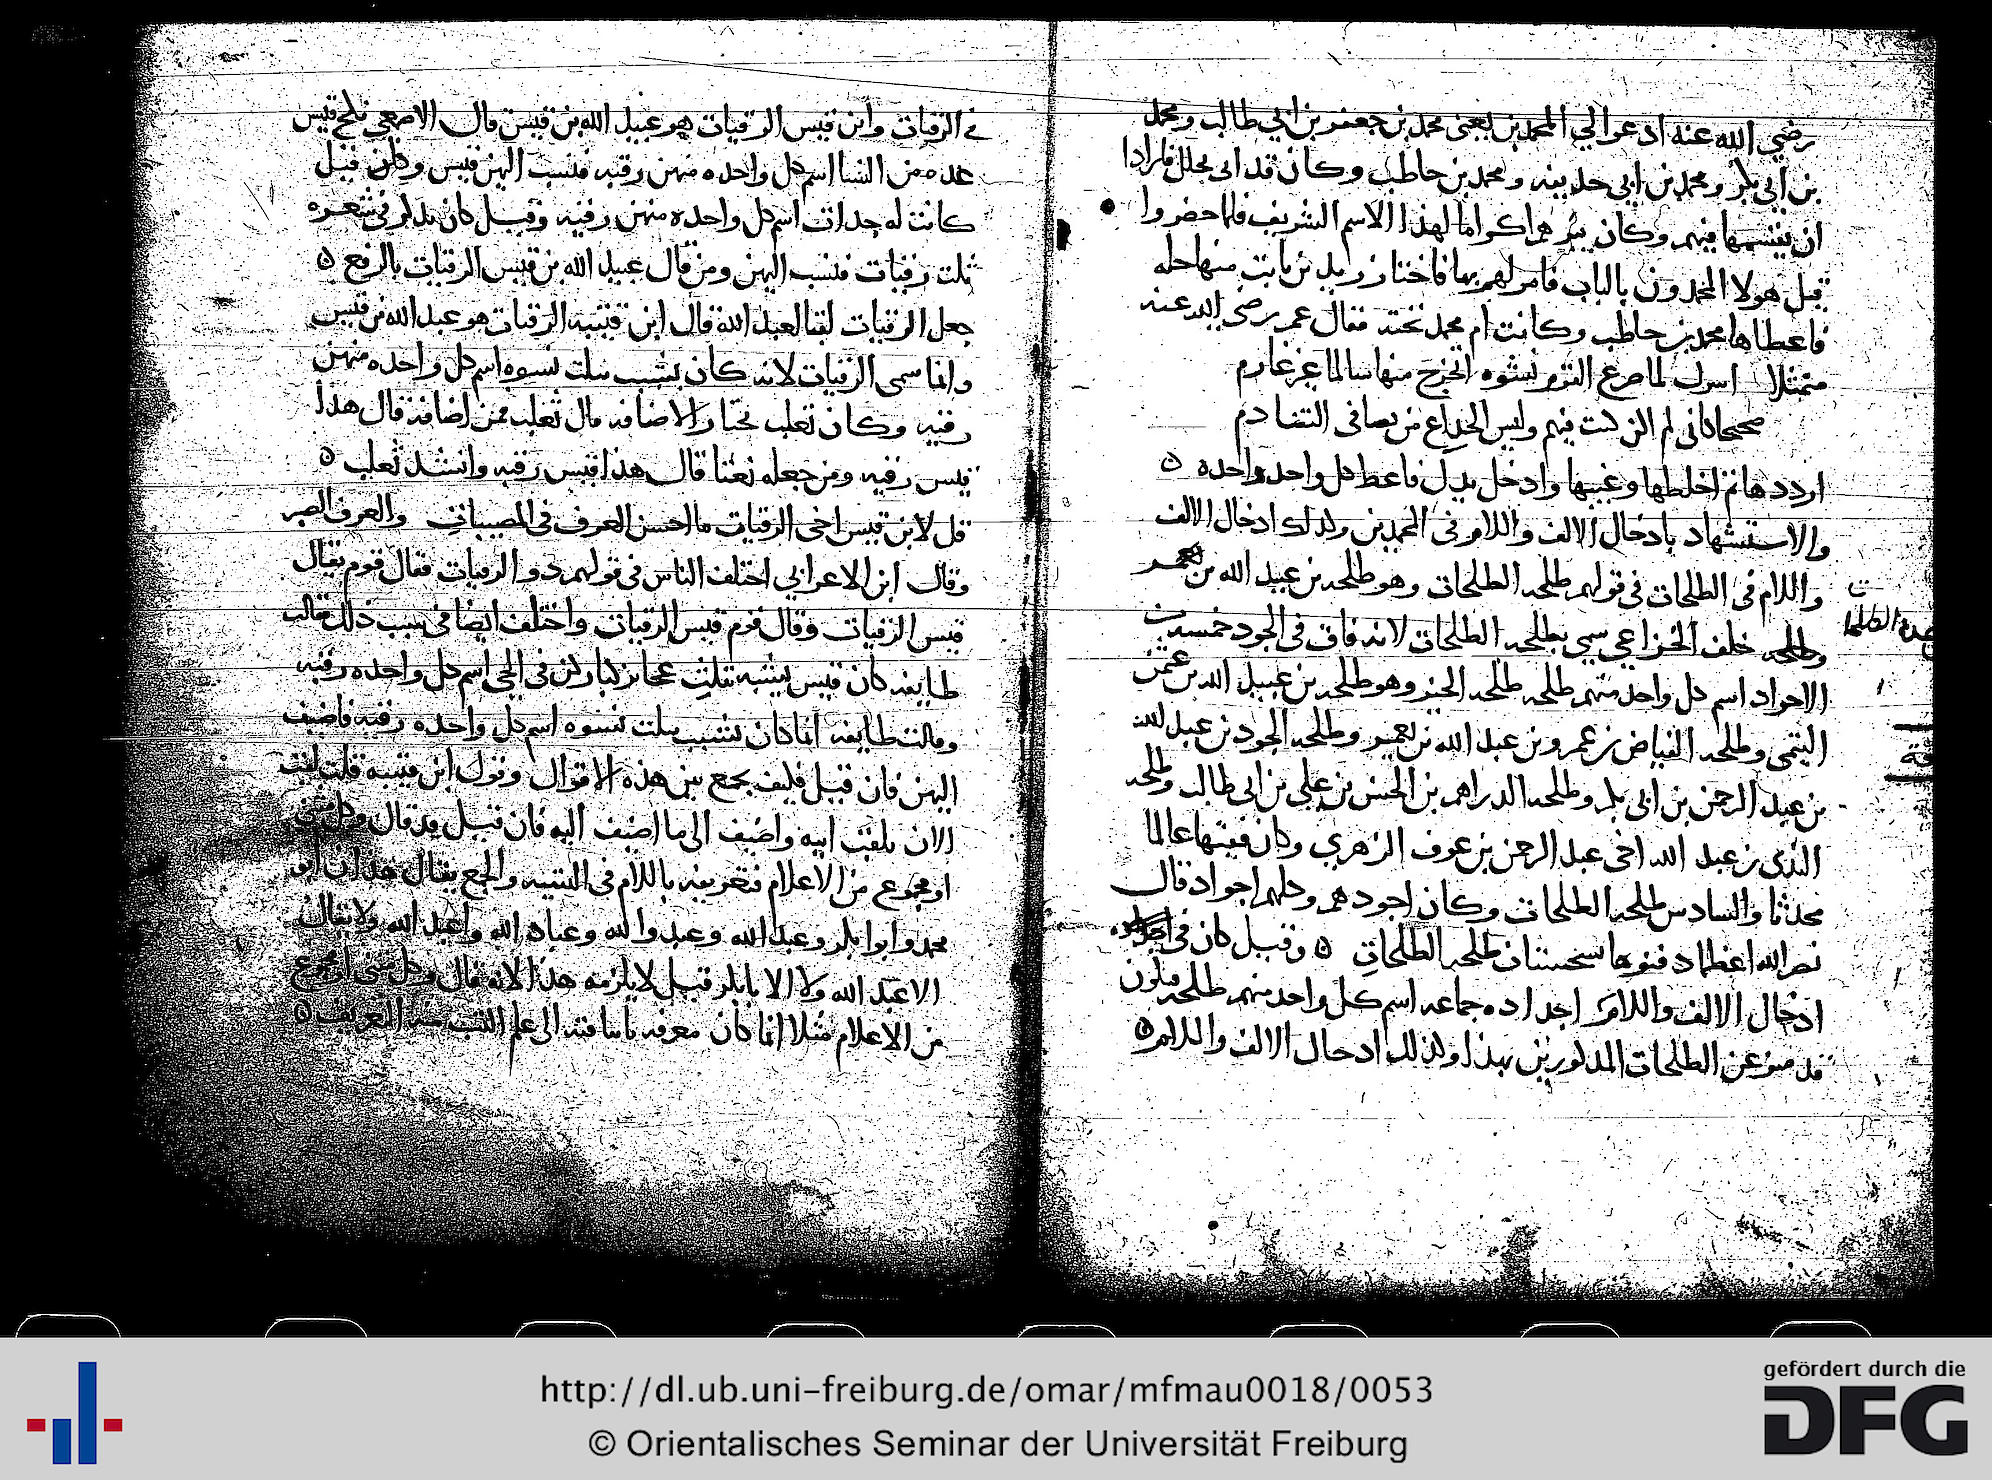 رضي الله عنه ادعوا لي المحمدين يعنى محمد بن جعفر بن ابي طالب ومحمد
بن ابي بكر ومحمد بن ابي حذيفه ومحمد بن حاطب وكان قد اتى بحلل فارادا
ان يقسمها فيهم وكان اكراما لهذا الاسم الشريف فلما حضروا
قيل هولا المحمدون بالباب فامر لهم بها فاختار زيد بن ثابت منها حله
فاعطاها محمد بن حاطب وكانت ام محمد تحته فقال عمر رضي الله عنه
متمثلا اسرك لما صرع القوم نشوه اخرج منها سالما غير غارم
كاني لم اكن كنت فيهم وليس الخداع من في التنادم
ارددها ثم اخلطها وغيبها وادخل يدك فاعط كل واحد واحده
والاستشهاد بادخال الالف واللام في المحمدين وكذلك ادخال الالف
واللام في الطلحات في قولهم طلحه الطلحات وهو طلحه بن عبيد الله بن
وطلحه خلف الخزاعي سمي بطلحه الطلحات لانه فاق في الجود خمسه
الاجواد اسم كل واحد منهم طلحه طلحه الخير وهو طلحه بن عبيد الله بن عثمن
التيمي وطلحه الفياض بن عمرو بن عبد الله بن معمر وطلحه الجود بن عبد الله
بن عبد الرحمن بن ابي بكر وطلحه الدراهم بن الحسن بن علي بن ابي طالب وطلحه
الندى بن عبد الله اخي عبد الرحمن بن عوف الزهري وكان فقيها عالما
محدثا والسادس طلحه الطلحات وكان اجودهم وكلهم اجواد قال
نصر الله اعظما دفنوها بسجستان طلحه الطلحات ٥ وقيل كان في
ادخال الالف واللام اجداده جماعه اسم كل واحد منهم طلحه فيكون
قد ميز عن الطلحات المذكورين بهذا وكذلك ادخال الالف واللام ٥
الطلحات
في الرقيات وابن قيس الرقيات هو عبيد الله بن قيس قال الاصمعي نكح قيس
عده من النسا اسم كل واحده منهن رقيه فنسب اليهن قيس وقيل
كانت له جدات اسم كل واحده منهن رقيه وقيل كان يذكر في شعره
ثلث رقيات فنسب اليهن ومن قال عبيد الله بن قيس الرقيات بالرفع ٥
جعل الرقيات لقبا لعبد الله قال ابن قتيبه الرقيات هو عبد الله بن قيس
وانما سمى الرقيات لانه كان يشبب بثلث نسوه اسم كل واحده منهن
رقيه وكان ثعلب يختار الاضافه قال ثعلب فمن اضافه قال هذا
قيس رقيه ومن جعله نعتا قال هذا قيس رقيه وانشد ثعلب ٥
قل لابن قيس اخي الرقيات ما احسن العرف في المصيبات والعرف الصبر
وقال ابن الاعرابي اختلف الناس في قولهم ذو الرقيات فقال قوم يقال
قيس الرقيات وقال قوم قيس الرقيات واختلف ايضا في سبب ذلك فقالت
طايفه كان قيس يشبه بثلث عجايز كبار كن في الحي اسم كل واحده رقيه
وقالت طايفه انما كان يشبب بثلث نسوه اسم كل واحده رقيه فاضيف
اليهن فان قيل فكيف يجمع بين هذه الاقوال وقول ابن قتيبه قلت
الابن بلقب ابيه واضيف الى ما اضيف اليه فان قيل قد قال وكل مثنى
او مجموع من الاعلام فتعريفه باللام في التثنيه والجمع يقال هذان ابو
محمد وابوا بكر وعبد الله وعبدوا لله وعباد الله واعبد الله ولا يقال
الا عبد الله ولا الا با بكر قيل لا يلزمه هذا لانه قال وكل مثنى او مجموع
من الاعلام مثلا انما كان معرفه باضافته الى علم
http://dl.ub.uni-freiburg.de/omar/mfmau0018/0053
© Orientalisches Seminar der Universität Freiburg
gefördert durch die
DFG